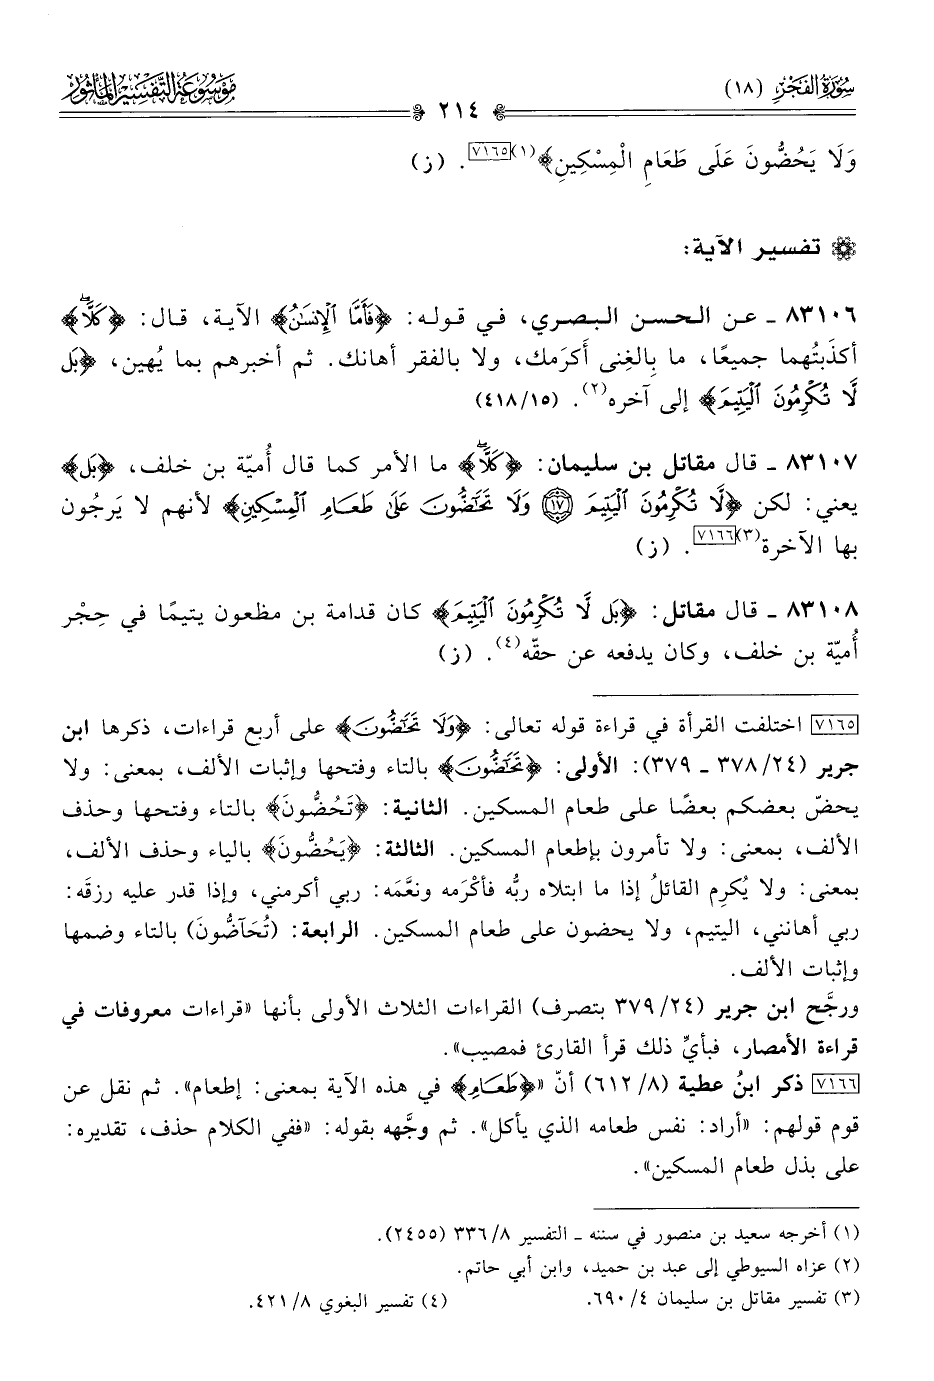 سُورَةُ الفَجْرِ (١٨)
٢١٤
مَوْسُوعَةُ التَّفْسِيرِ المَأْثُور
وَلَا يَحُضُّونَ عَلَى طَعَامِ الْمِسْكِينِ﴾(١)[٧١٦٥]. (ز)
تفسير الآية:
٨٣١٠٦ ـ عن الحسن البصري، في قوله: ﴿فَأَمَّا ٱلْإِنسَٰنُ﴾ الآية، قال: ﴿كَلَّاۖ﴾
أكذَبتُهما جميعًا، ما بِالغِنى أَكرَمك، ولا بالفقر أهانك. ثم أخبرهم بما يُهين، ﴿بَل
لَّا تُكْرِمُونَ ٱلْيَتِيمَ﴾ إلى آخره(٢). (٤١٨/١٥)
٨٣١٠٧ ـ قال مقاتل بن سليمان: ﴿كَلَّاۖ﴾ ما الأمر كما قال أُميّة بن خلف، ﴿بَل﴾
يعني: لكن ﴿لَّا تُكْرِمُونَ ٱلْيَتِيمَ ۝١٧ وَلَا تَحَٰٓضُّونَ عَلَىٰ طَعَامِ ٱلْمِسْكِينِ﴾ لأنهم لا يَرجُون
بها الآخرة(٣)[٧١٦٦]. (ز)
٨٣١٠٨ ـ قال مقاتل: ﴿بَل لَّا تُكْرِمُونَ ٱلْيَتِيمَ﴾ كان قدامة بن مظعون يتيمًا في حِجْر
أُميّة بن خلف، وكان يدفعه عن حقّه(٤). (ز)
[٧١٦٥] اختلفت القرأة في قراءة قوله تعالى: ﴿وَلَا تَحَٰٓضُّونَ﴾ على أربع قراءات، ذكرها ابن
جرير (٢٤/ ٣٧٨ ـ ٣٧٩): الأولى: ﴿تَحَٰٓضُّونَ﴾ بالتاء وفتحها وإثبات الألف، بمعنى: ولا
يحضّ بعضكم بعضًا على طعام المسكين. الثانية: ﴿تَحُضُّونَ﴾ بالتاء وفتحها وحذف
الألف، بمعنى: ولا تأمرون بإطعام المسكين. الثالثة: ﴿يَحُضُّونَ﴾ بالياء وحذف الألف،
بمعنى: ولا يُكرِم القائلُ إذا ما ابتلاه ربُّه فأكْرَمه ونعَّمَه: ربي أكرمني، وإذا قدر عليه رزقَه:
ربي أهانني، اليتيم، ولا يحضون على طعام المسكين. الرابعة: (تُحَآضُّونَ) بالتاء وضمها
وإثبات الألف.
ورجَّح ابن جرير (٢٤/ ٣٧٩ بتصرف) القراءات الثلاث الأولى بأنها «قراءات معروفات في
قراءة الأمصار، فبأيِّ ذلك قرأ القارئ فمصيب».
[٧١٦٦] ذكر ابنُ عطية (٨/ ٦١٢) أنّ «﴿طَعَامِ﴾ في هذه الآية بمعنى: إطعام». ثم نقل عن
قوم قولهم: «أراد: نفس طعامه الذي يأكل». ثم وجَّهه بقوله: «ففي الكلام حذف، تقديره:
على بذل طعام المسكين».
(١) أخرجه سعيد بن منصور في سننه ـ التفسير ٨/ ٣٣٦ (٢٤٥٥).
(٢) عزاه السيوطي إلى عبد بن حميد، وابن أبي حاتم.
(٣) تفسير مقاتل بن سليمان ٤/ ٦٩٠. (٤) تفسير البغوي ٨/ ٤٢١.